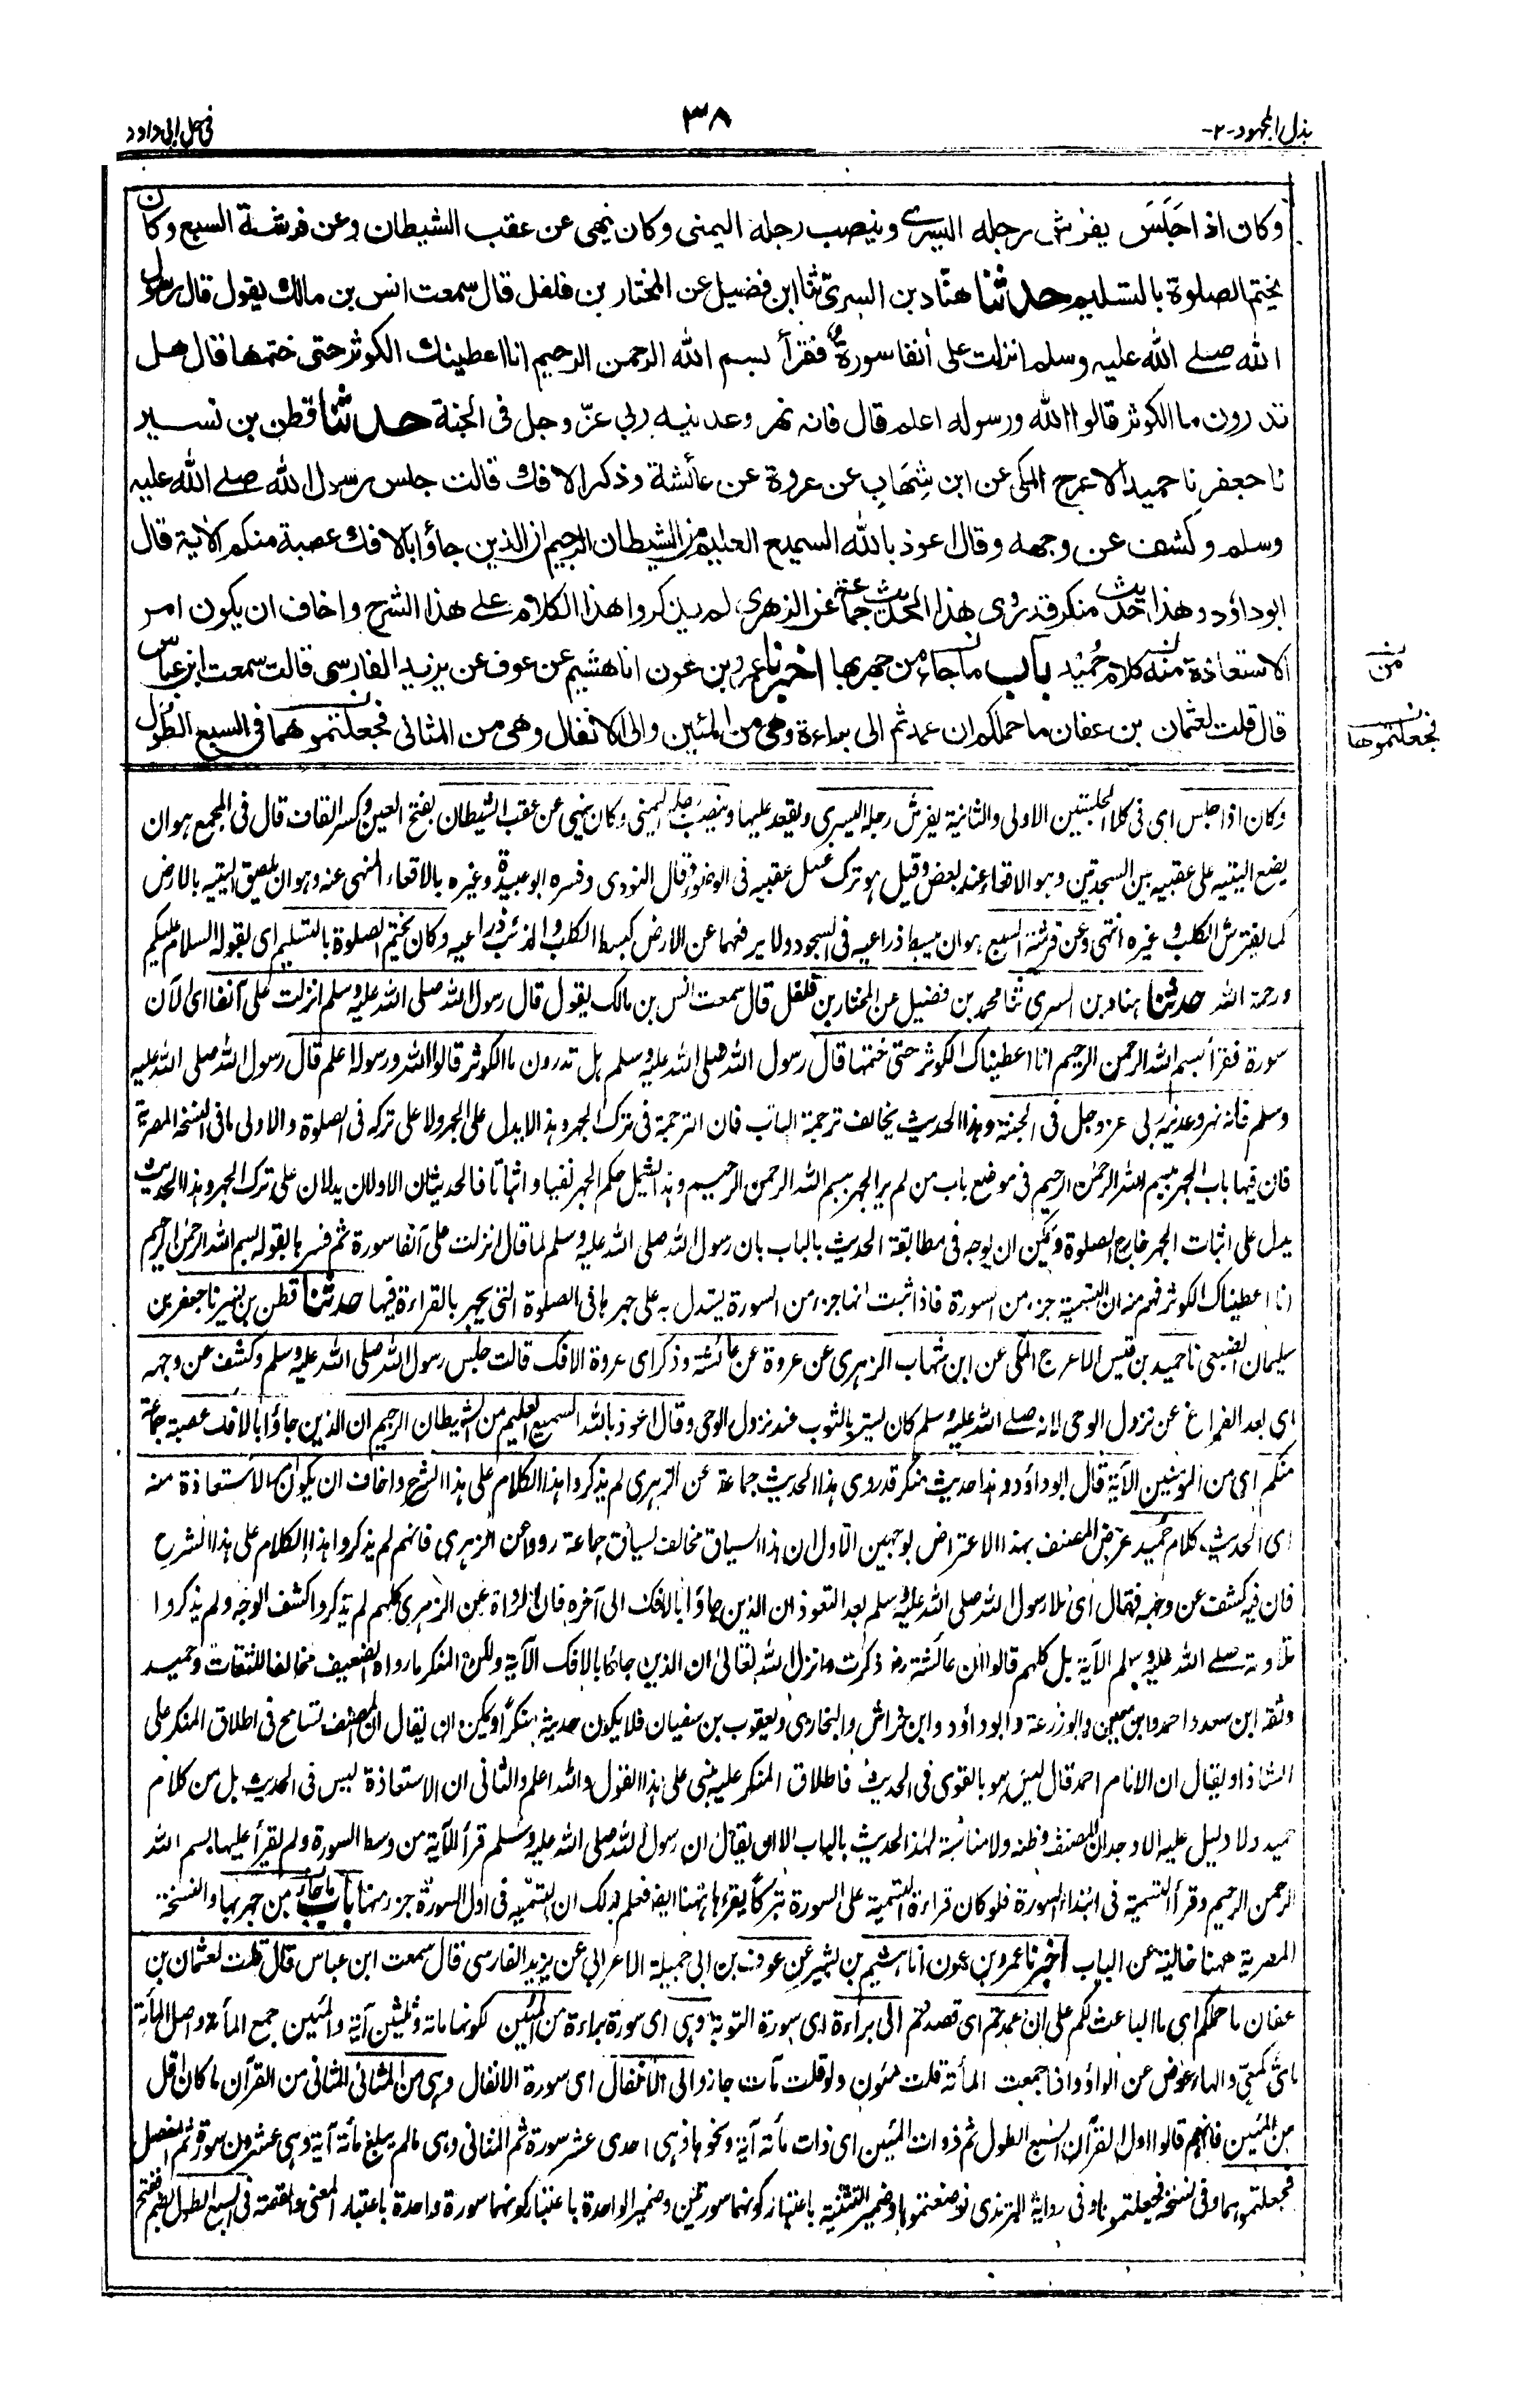 بذل المجهود-٢-
٣٨
في حل ابي داود
وكان اذا جَلَسَ يفرش رجله اليسرى وينصب رجله اليمنى وكان ينهى عن عقب الشيطان وعن فرشة السبع وكان
يختم الصلوة بالتسليم حدثنا هنّاد بن السرىّ ثنا ابن فضيل عن المختار بن فلفل قال سمعت انس بن مالك يقول قال رسول
الله صلے الله عليه وسلم انزلت على أنفا سورة فقرأ بسم الله الرحمن الرحيم انا اعطيناك الكوثر حتى ختمها قال هل
تدرون ما الكوثر قالوا الله ورسوله اعلم قال فانه نهر وعدنيه ربي عزّ وجل فى الجنة حدثنا قطن بن نسير
نا جعفر نا حميد الاعرج المكى عن ابن شِهَابٍ عن عروة عن عائشة وذكر الافك قالت جلس رسول الله صلے الله عليه
وسلم وكشف عن وجهه وقال اعوذ بالله السميع العليم من الشيطان الرجيم ان الذين جاؤا بالافك عصبة منكم الأية قال
ابوداؤد وهذا حديث منكر قد روى هذا الحديث جماعة عن الزهرى لم يذكروا هذا الكلام على هذا الشرح واخاف ان يكون امر
الاستعاذة منه كلام حُميد باب ما جاء من جهر بها اخبرنا عمرو بن عون انا هشيم عن عوف عن يزيد الفارسى قالت سمعت ابن عباس
قال قلت لعثمان بن عفان ما حملكم ان عمدتم الى براءة وهى من المئين والى الانفال وهى من المثانى فجعلتموهما فى السبع الطول
من
فجعلتموها
وكان اذا جلس اى فى كلا الجلستين الاولى والثانية يفرش رجله اليسرى ويقعد عليها وينصب رجله اليمنى وكان ينهى عن عقب الشيطان بفتح العين وكسر القاف قال فى المجمع هو ان
يضع اليتيه على عقبيه بين السجدتين وهو الاقعاء عند بعض وقيل هو ترك غسل عقبيه فى الوضوء قال النووى وفسره ابو عبيدة وغيره بالاقعاء المنهى عنه وهو ان يلصق اليتيه بالارض
كما يفترش الكلب وغيره انتهى وعن فرشة السبع هو ان يبسط ذراعيه فى السجود ولا يرفعهما عن الارض كبسط الكلب والذئب ذراعيه وكان يختم الصلوة بالتسليم اى بقوله السلام عليكم
ورحمة الله حدثنا هناد بن السرى ثنا محمد بن فضيل عن المختار بن فلفل قال سمعت انس بن مالك يقول قال رسول الله صلى الله عليه وسلم انزلت على آنفا اى الآن
سورة فقرأ بسم الله الرحمن الرحيم انا اعطيناك الكوثر حتى ختمها قال رسول الله صلى الله عليه وسلم هل تدرون ما الكوثر قالوا الله ورسوله اعلم قال رسول الله صلى الله عليه
وسلم فانه نهر وعدنيه ربى عز وجل فى الجنة وهذا الحديث يخالف ترجمة الباب فان الترجمة فى ترك الجهر وهذا لا يدل على الجهر ولا على تركه فى الصلوة والاولى ما فى النسخة المصرية
فان فيها باب الجهر ببسم الله الرحمن الرحيم فى موضع باب من لم ير الجهر ببسم الله الرحمن الرحيم وهذا يشمل حكم الجهر نفيا واثباتا فالحديثان الاولان يدلان على ترك الجهر وهذا الحديث
يدل على اثبات الجهر خارج الصلوة ويمكن ان يوجه فى مطابقة الحديث بالباب بان رسول الله صلى الله عليه وسلم لما قال انزلت على آنفا سورة ثم فسرها بقوله بسم الله الرحمن الرحيم
انا اعطيناك الكوثر فهم منه ان التسمية جزء من السورة فاذا ثبت انها جزء من السورة يستدل به على جهرها فى الصلوة التى يجهر بالقراءة فيها حدثنا قطن بن نسير نا جعفر بن
سليمان الضبعى نا حميد بن قيس الاعرج المكى عن ابن شهاب الزهرى عن عروة عن عائشة وذكر اى عروة الافك قالت جلس رسول الله صلى الله عليه وسلم وكشف عن وجهه
اى بعد الفراغ عن نزول الوحى لانه صلے الله عليه وسلم كان يستر بالثوب عند نزول الوحى وقال اعوذ بالله السميع العليم من الشيطان الرجيم ان الذين جاؤا بالافك عصبة جماعة
منكم اى من المؤمنين الآية قال ابوداؤد وهذا حديث منكر قد روى هذا الحديث جماعة عن الزهرى لم يذكروا هذا الكلام على هذا الشرح واخاف ان يكون امر الاستعاذة منه
اى الحديث كلام حميد غرض المصنف بهذا الاعتراض لوجهين الاول ان هذا السياق مخالف لسياق جماعة رووا عن الزهرى فانهم لم يذكروا هذا الكلام على هذا الشرح
فان فيه كشف عن وجهه فقال اى تلا رسول الله صلى الله عليه وسلم بعد التعوذ ان الذين جاؤا بالافك الى آخره فان الرواة عن الزهرى كلهم لم يذكروا كشف الوجه ولم يذكروا
تلاوته صلے الله عليه وسلم الآية بل كلهم قالوا ان عائشة رض ذكرت ما نزل الله تعالى ان الذين جاؤا بالافك الآية ولكن المنكر ما رواه الضعيف مخالفا للثقات وحميد
وثقه ابن سعد واحمد وابن معين وابو زرعة وابو داؤد وابن خراش والبخارى ويعقوب بن سفيان فلا يكون حديثه منكرًا ويمكن ان يقال ان المصنف تسامح فى اطلاق المنكر على
الشاذ او يقال ان الامام احمد قال ليس هو بالقوى فى الحديث فاطلاق المنكر عليه مبنى على هذا القول والله اعلم والثانى ان الاستعاذة ليس فى الحديث بل من كلام
حميد ولا دليل عليه الا وجدان المصنف وظنه ولا مناسبة لهذا الحديث بالباب الا ان يقال ان رسول الله صلى الله عليه وسلم قرأ الآية من وسط السورة ولم يقرأ عليها بسم الله
الرحمن الرحيم وقرأ التسمية فى ابتداء السورة فلو كان قراءة التسمية على السورة تبركاً يقرءها ههنا ايضا فعلم بذلك ان التسمية فى اول السورة جزء منها باب ما جاء من جهر بها والنسخة
المصرية ههنا خالية عن الباب اخبرنا عمرو بن عون انا هشيم بن بشير عن عوف بن ابى جميلة الاعرابى عن يزيد الفارسى قال سمعت ابن عباس قال قلت لعثمان بن
عفان ما حملكم اى ما الباعث لكم على ان عمدتم اى قصدتم الى براءة اى سورة التوبة وهى اى سورة براءة من المئين لكونها مائة وثلثين آية والمئين جمع المأة واصل المأة
مائى كمعى والهاء عوض عن الواو واذا جمعت المأة قلت مئون ولو قلت مآت جاز والى الانفال اى سورة الانفال وهى من المثانى المثانى من القرآن ما كان اقل
من المئين فانهم قالوا اول القرآن السبع الطول ثم ذوات المئين اى ذات مأة آية ونحوها وهى احدى عشر سورة ثم المثانى وهى ما لم يبلغ مأة آية وهى عشرون سورة ثم المفصل
فجعلتموهما وفى نسخة فجعلتموها وفى رواية الترمذى فوضعتموها وضمير التثنية باعتبار كونهما سورتين وضمير الواحدة باعتبار كونهما سورة واحدة باعتبار المعنى والقصة فى السبع الطول بضم ففتح